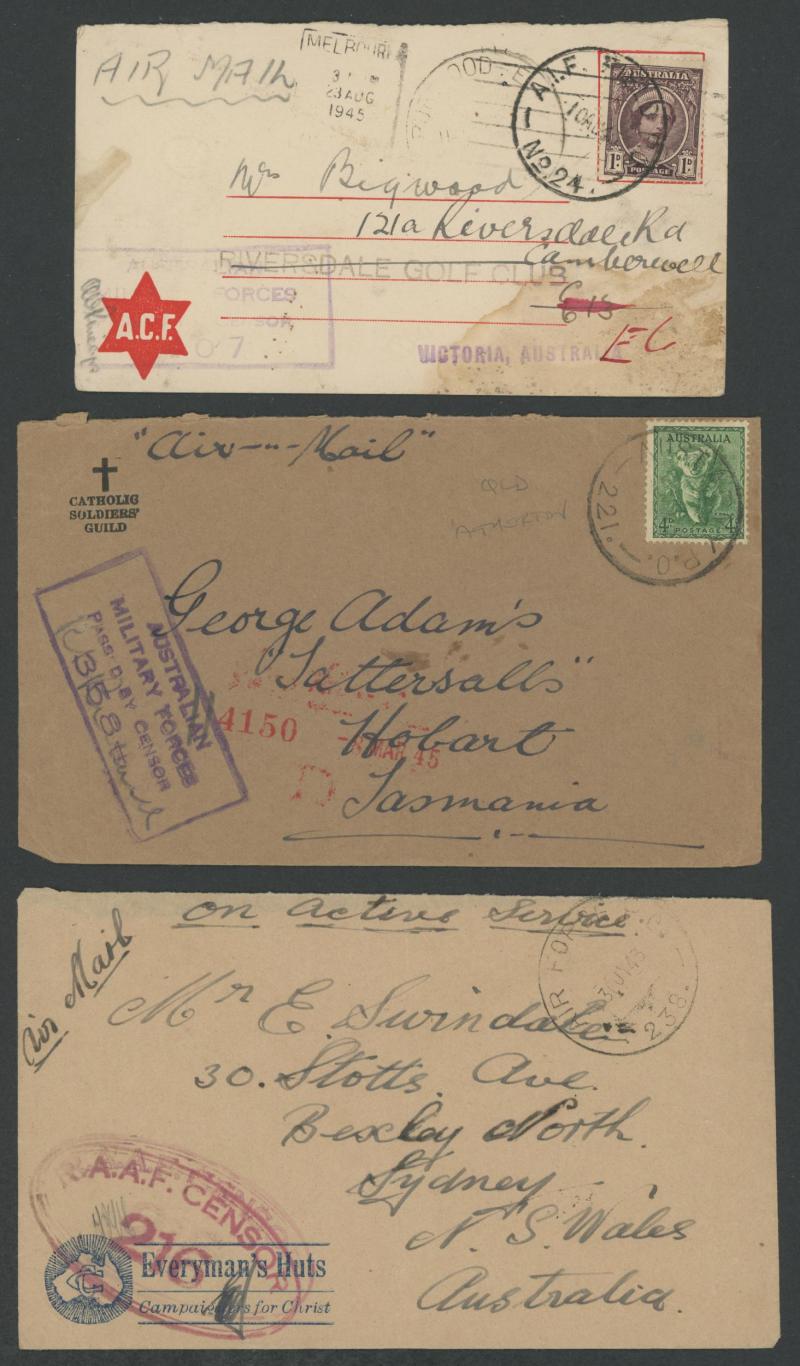 AIR MAIL
MELBOURN
23 AUG
1945
A.I.F.
No. 24.
AUSTRALIA
1D 1D
POSTAGE
Mrs Bigwood
121a Riversdale Rd
Camberwell
RIVERSDALE GOLF CLUB
FORCES
A.C.F.
07
VICTORIA, AUSTRALIA
E6
"Air-Mail"
CATHOLIC
SOLDIERS'
GUILD
QLD
ATHERTON
AUSTRALIA
4D 4D
POSTAGE
221.
P.O.
AUSTRALIAN
MILITARY FORCES
PASSED BY CENSOR
George Adam's
"Tattersalls"
4150
Hobart
MAR 45
D
Tasmania
On Active Service
Air Mail
AIR FO
238.
Mr E. Swindale
30. Stotts Ave.
Bexley North.
Sydney
N. S. Wales
Australia.
R.A.A.F. CENSOR
216
Everyman's Huts
Campaigners for Christ